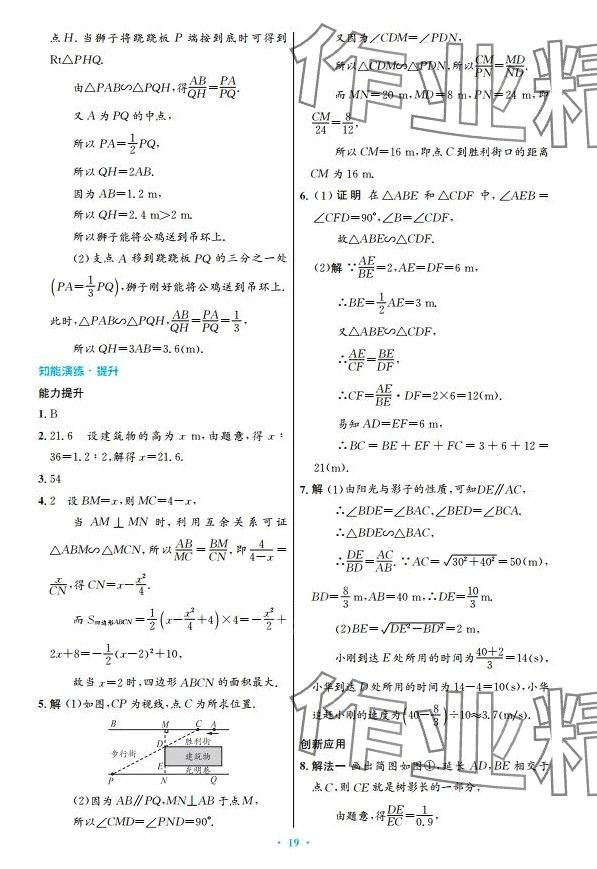 点 H. 当狮子将跷跷板 P 端按到底时可得到
Rt△PHQ.
由△PAB∽△PQH,得AB/QH=PA/PQ.
又 A 为 PQ 的中点,
所以 PA=1/2PQ,
所以 QH=2AB.
因为 AB=1.2 m,
所以 QH=2.4 m>2 m.
所以狮子能将公鸡送到吊环上.
(2)支点 A 移到跷跷板 PQ 的三分之一处
(PA=1/3PQ),狮子刚好能将公鸡送到吊环上.
此时,△PAB∽△PQH,AB/QH=PA/PQ=1/3,
所以 QH=3AB=3.6(m).
知能演练·提升
能力提升
1. B
2. 21.6 设建筑物的高为 x m,由题意,得 x∶
36=1.2∶2,解得 x=21.6.
3. 54
4. 2 设 BM=x,则 MC=4−x,
当 AM⊥MN 时,利用互余关系可证
△ABM∽△MCN,所以AB/MC=BM/CN,即4/(4−x)=
x/CN,得 CN=x−x²/4.
而 S四边形ABCN=1/2(x−x²/4+4)×4=−x²/2+
2x+8=−1/2(x−2)²+10,
故当 x=2 时,四边形 ABCN 的面积最大.
5. 解 (1)如图,CP 为视线,点 C 为所求位置.
B M C A
胜利街
D
步行街
建筑物
E
光明巷
P N Q
(2)因为 AB∥PQ,MN⊥AB 于点 M,
所以∠CMD=∠PND=90°.
又因为∠CDM=∠PDN,
所以△CDM∽△PDN,所以CM/PN=MD/ND.
而 MN=20 m,MD=8 m,PN=24 m,即
CM/24=8/12,
所以 CM=16 m,即点 C 到胜利街口的距离
CM 为 16 m.
6. (1)证明 在△ABE 和△CDF 中,∠AEB=
∠CFD=90°,∠B=∠CDF,
故△ABE∽△CDF.
(2)解 ∵AE/BE=2,AE=DF=6 m,
∴BE=1/2AE=3 m.
又△ABE∽△CDF,
∴AE/CF=BE/DF,
∴CF=AE/BE·DF=2×6=12(m).
易知 AD=EF=6 m,
∴BC=BE+EF+FC=3+6+12=
21(m).
7. 解 (1)由阳光与影子的性质,可知DE∥AC,
∴∠BDE=∠BAC,∠BED=∠BCA.
∴△BDE∽△BAC,
∴DE/BD=AC/AB.∵AC=√(30²+40²)=50(m),
BD=8/3 m,AB=40 m,∴DE=10/3 m.
(2)BE=√(DE²−BD²)=2 m,
小刚到达 E 处所用的时间为(40+2)/3=14(s),
小华到达 D 处所用的时间为 14−4=10(s),小华
追赶小刚的速度为(40−8/3)÷10≈3.7(m/s).
创新应用
8. 解法一 画出简图如图①,延长 AD,BE 相交于
点 C,则 CE 就是树影长的一部分,
由题意,得DE/EC=1/0.9,
· 19 ·
作业精
作业精